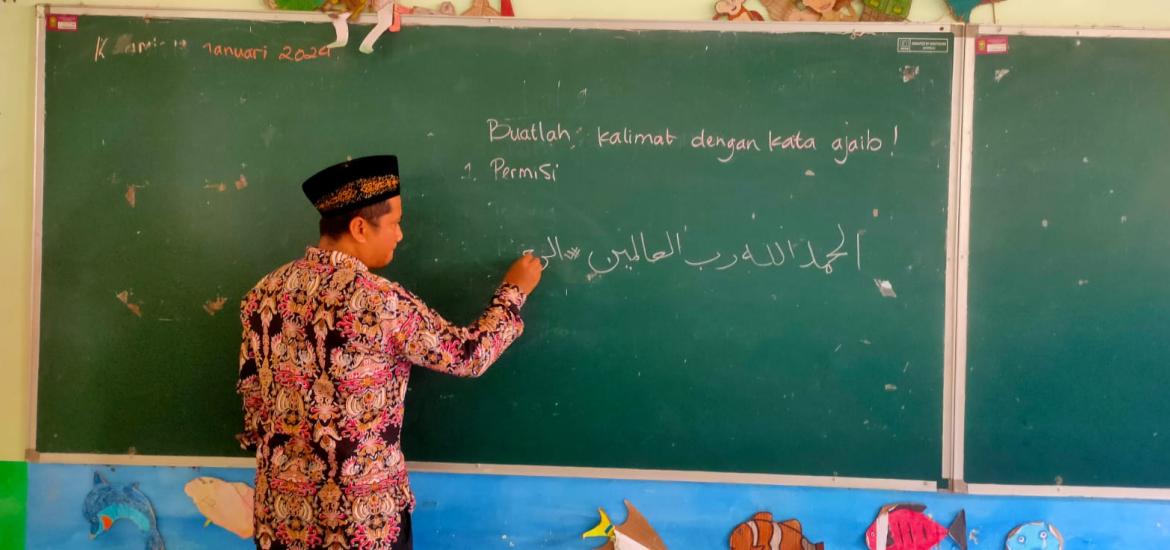 Januari 2024
Buatlah kalimat dengan kata ajaib!
1. Permisi
الحمد الله رب العالمين * الر